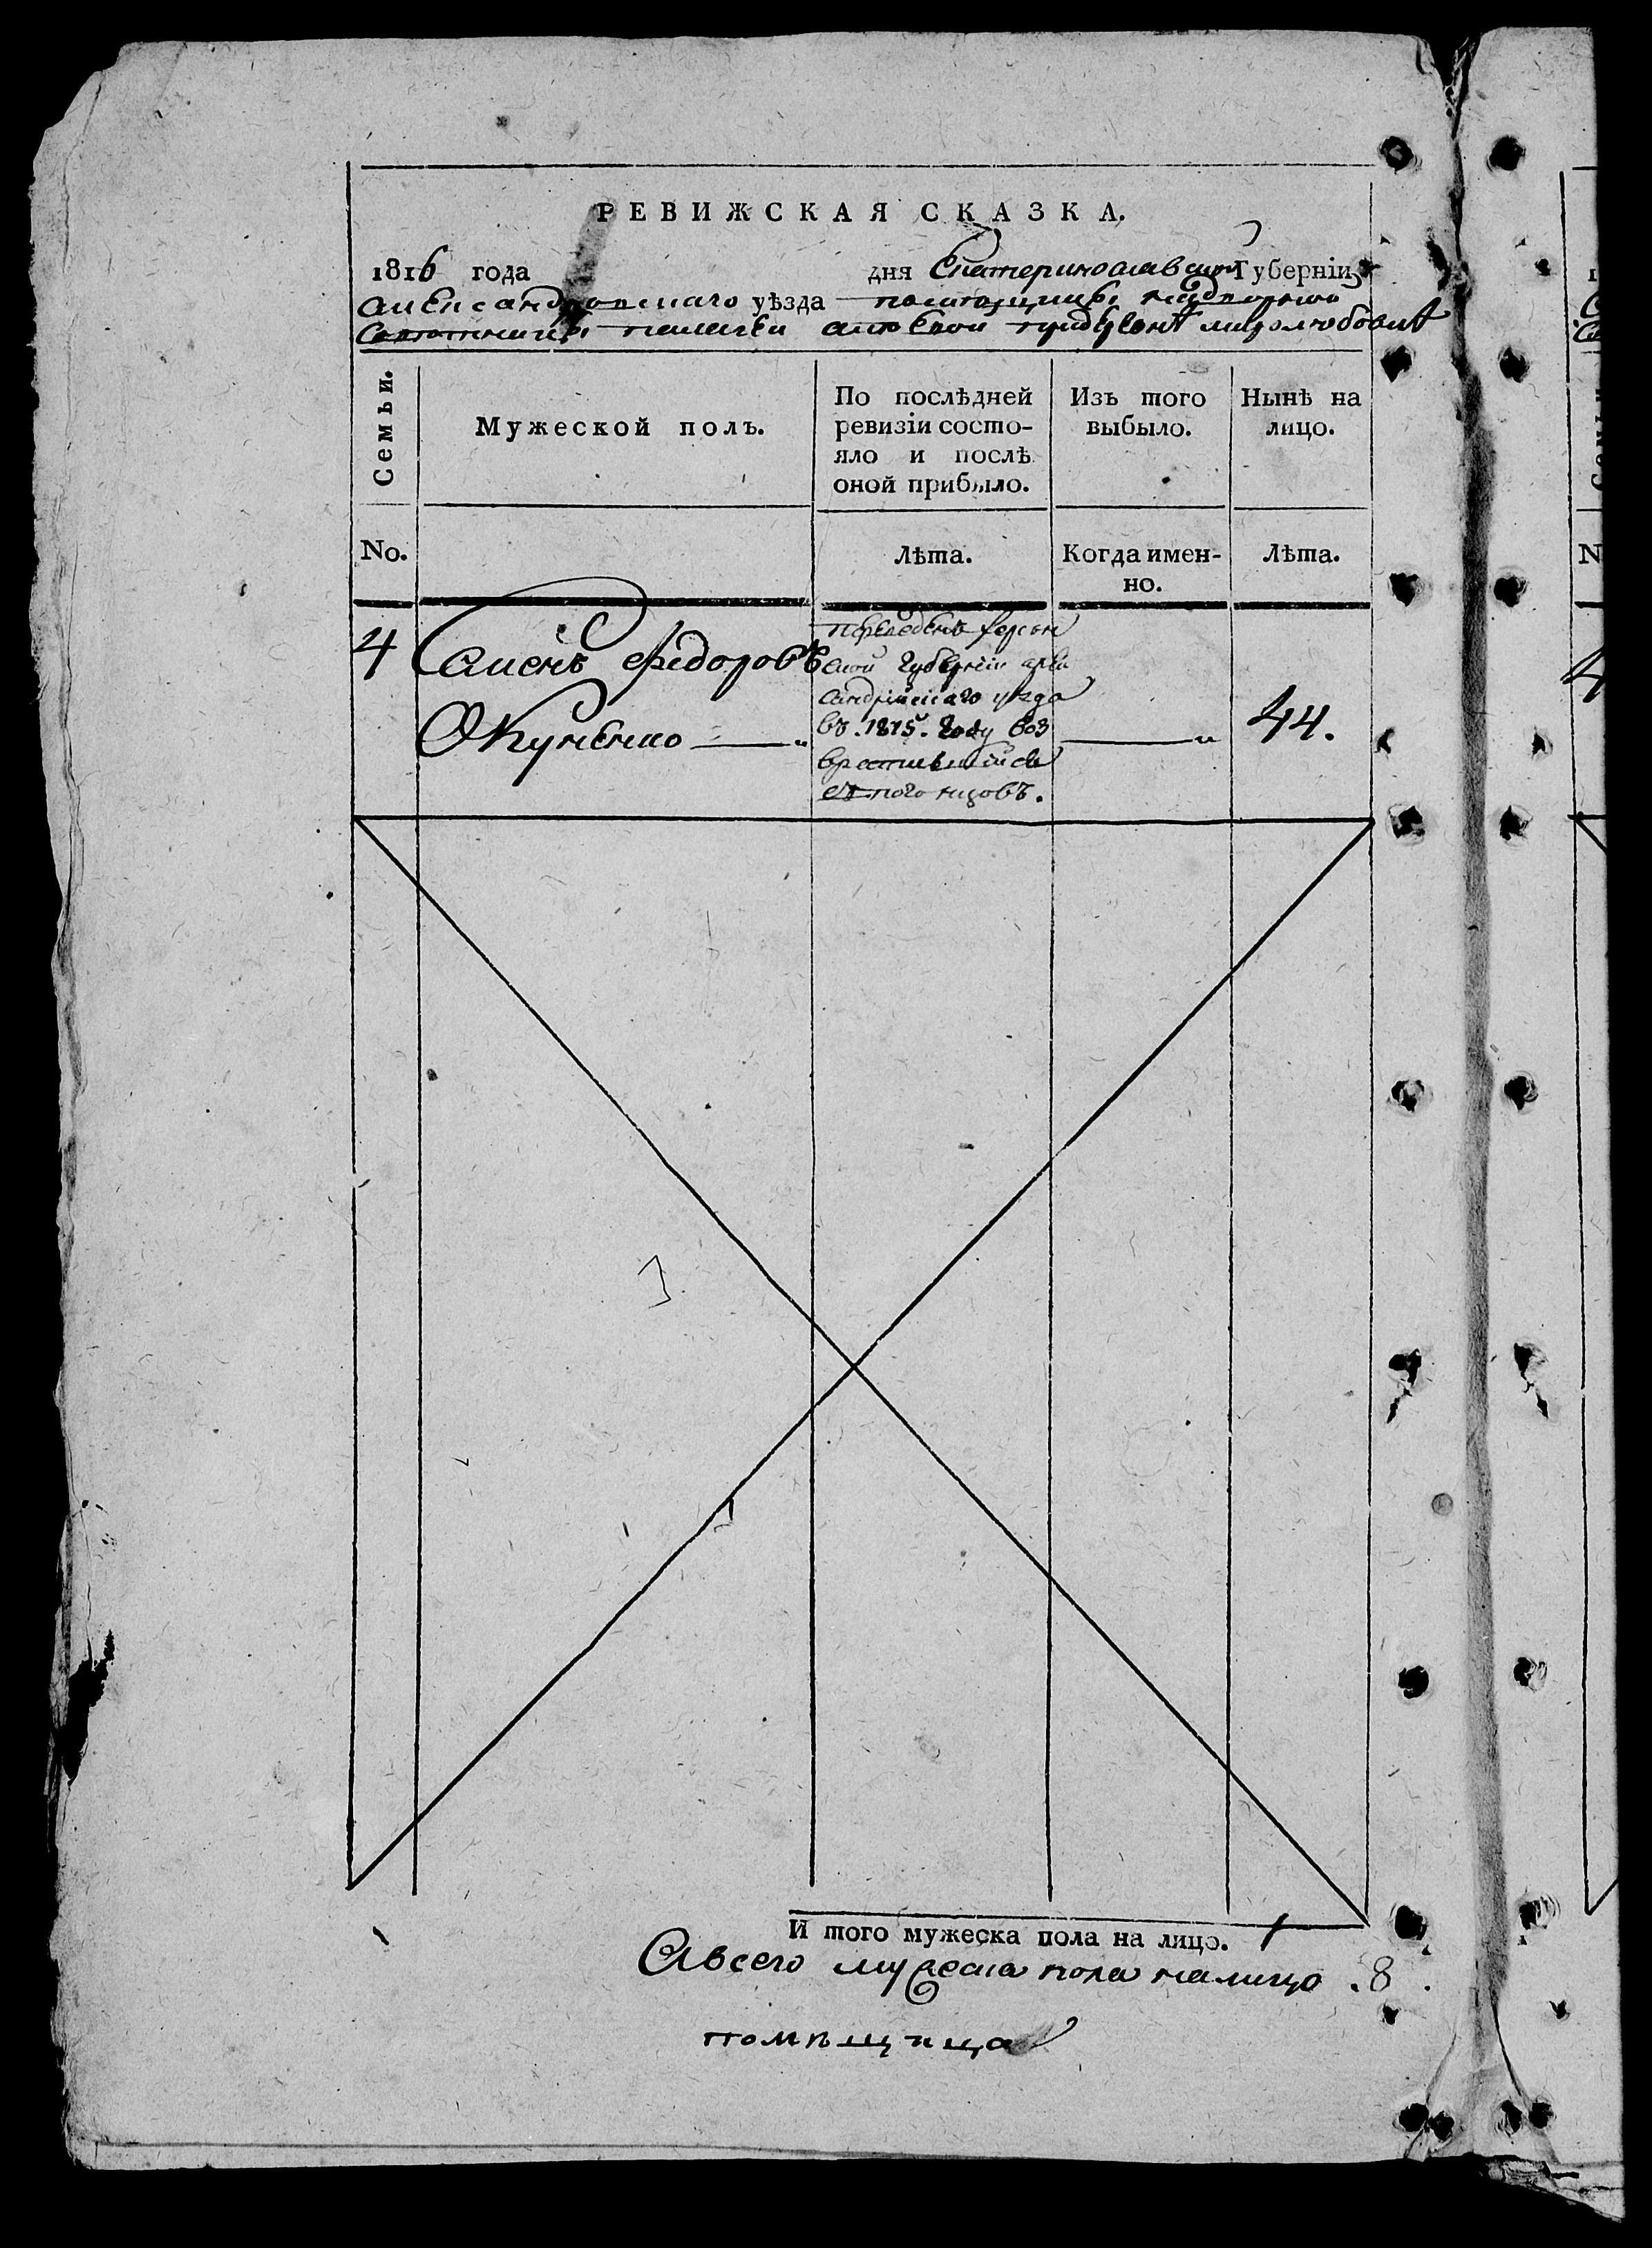 РЕВИЖСКАЯ СКАЗКА.
1816 года дня Екатеринославской Губерніи
Александровскаго уѣзда помѣщицы надворной
Совѣтницы Пелагеи Алексѣевой
Семьи.
Мужеской полъ.
По послѣдней ревизіи состо-
яло и послѣ
оной прибыло.
Изъ того
выбыло.
Нынѣ на
лицо.
No.
Лѣта.
Когда имен-
но.
Лѣта.
4 Семенъ Федоровъ
Окуненко
переведенъ херсон
ской губерніи алек
сандрійскаго уезда
въ 1815. году воз
вратившійся
44.
И того мужеска пола на лицо. 1
Авсего мужеска пола налицо .8.
помѣщица